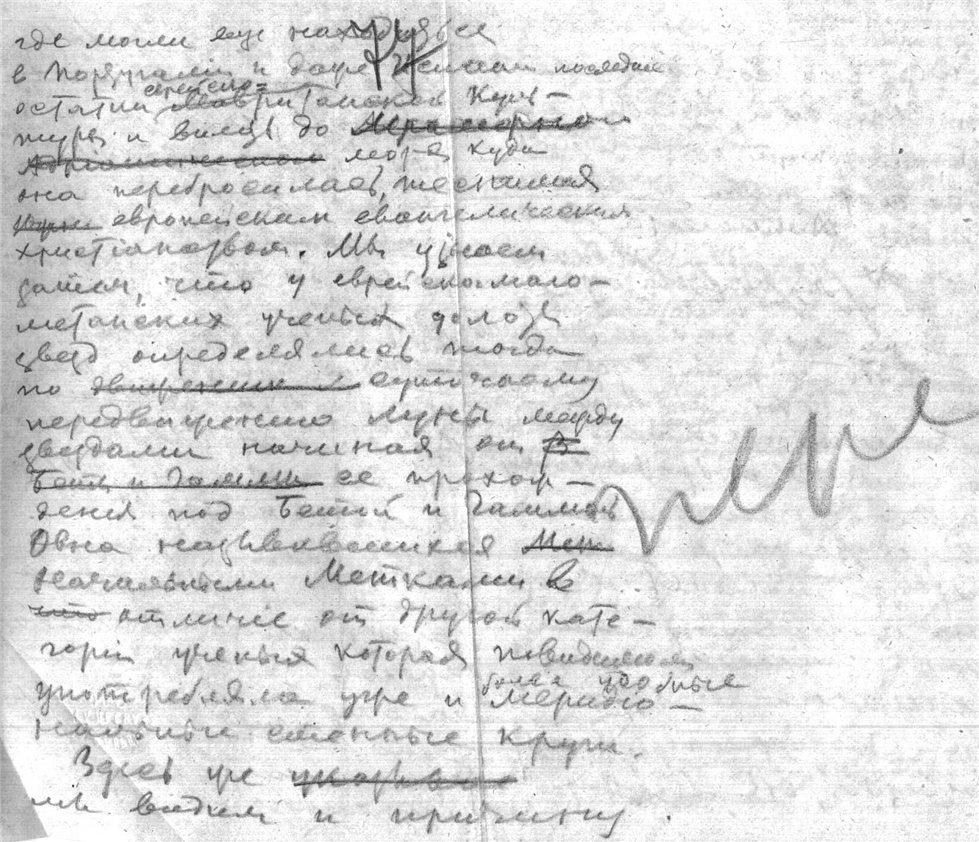 где могли еще находиться
в Португалии и даже Испании последние
остатки мавританской куль-
туры и вплоть до Мраморного
Адриатического моря куда
она перебросилась, теснимая
европейским евангелическим
христіанством. Мы узнаем
затем, что у еврейскомаго-
метанских ученых долготы
звезд определялись тогда
по движению суточному
передвижению луны между
звездами начиная от
Беты и Гаммы ее прохож-
дения под Бетой и Гаммой
Овна называвшихся
начальными Метками в
что отличіе от другой кате-
горіи ученых которая повидимому
употребляла уже и более удобные меридіо-
нальные стенные круги.
Здесь уже
мы видим и причину